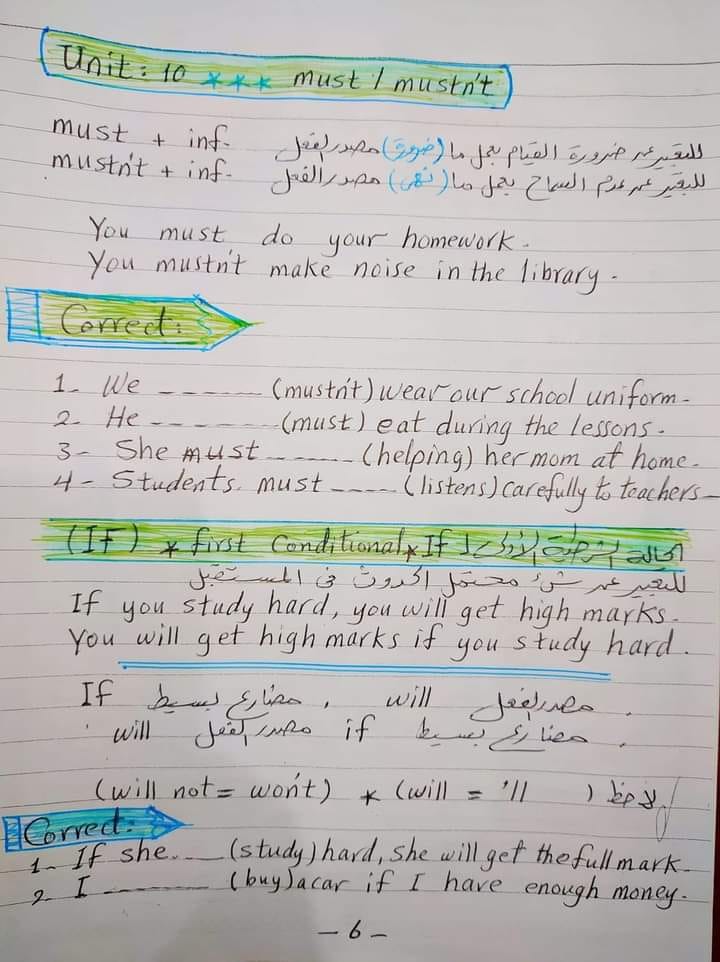 Unit: 10 *** must / mustn't
must + inf. للتعبير عن ضرورة القيام بعمل ما (ضرورة) مصدر الفعل
mustn't + inf. للتعبير عن عدم السماح بعمل ما (نهى) مصدر الفعل
You must do your homework.
You mustn't make noise in the library.
Correct:
1- We ------ (mustn't) wear our school uniform.
2- He ------- (must) eat during the lessons.
3- She must ------ (helping) her mom at home.
4- Students must ---- (listens) carefully to teachers
(IF) * first conditional * If الحالة الشرطية الأولى لـ
للتعبير عن شئ محتمل الحدوث فى المستقبل
If you study hard, you will get high marks.
You will get high marks if you study hard.
If مضارع بسيط , will مصدر الفعل .
will مصدر الفعل if مضارع بسيط .
(will not = won't) * (will = 'll ) لاحظ
Correct:
1- If she ---- (study) hard, she will get the full mark.
2- I ------- (buy) a car if I have enough money.
- 6 -